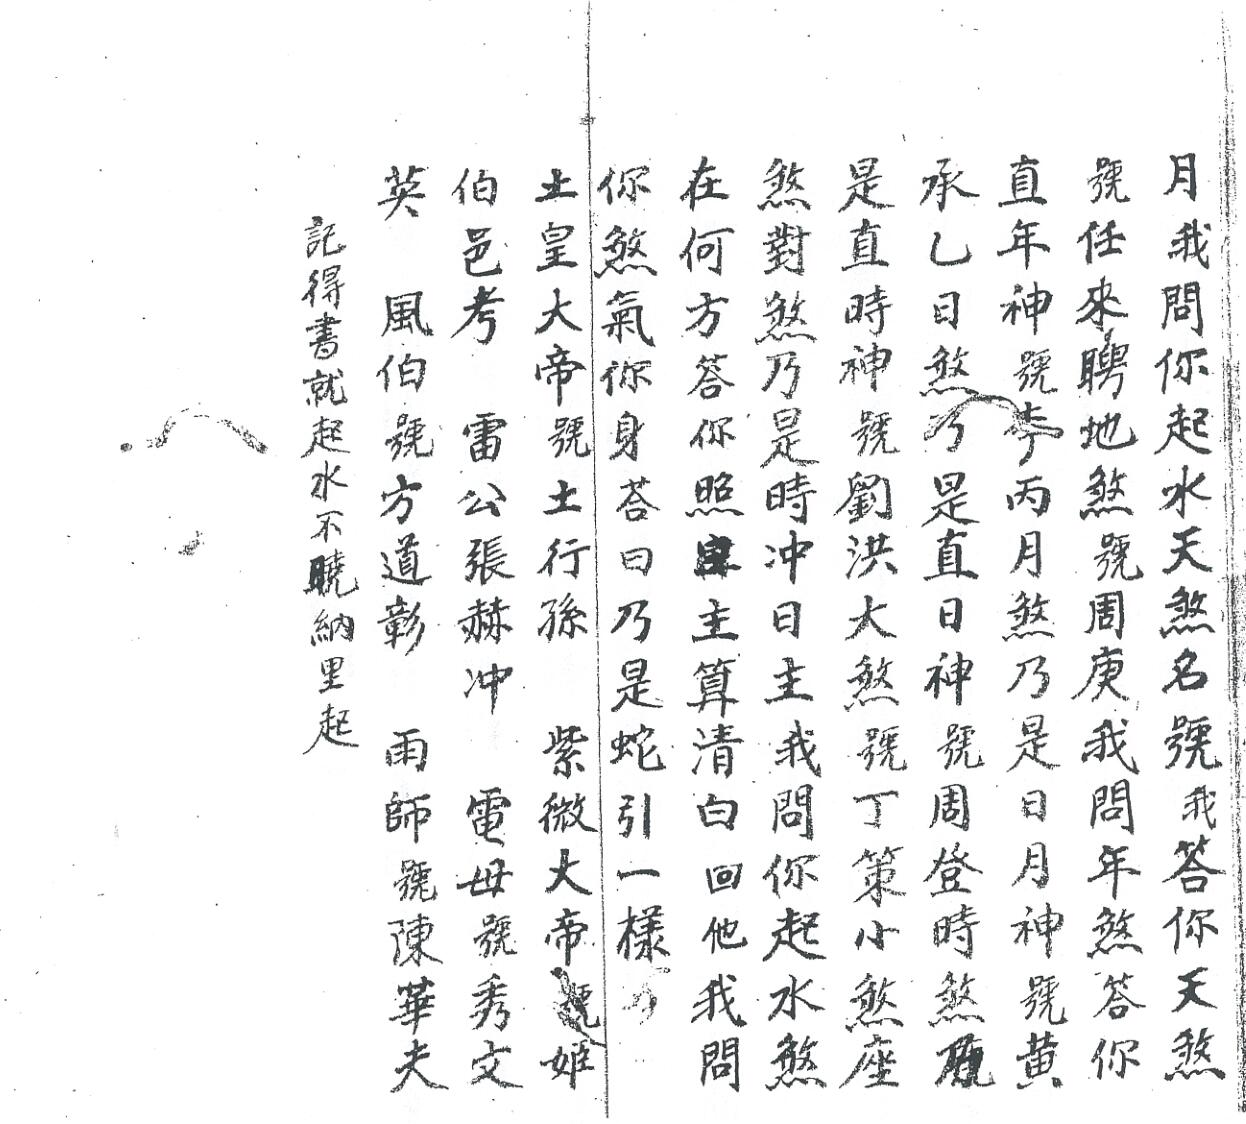 月我問你起水天煞名號我答你天煞
號任來聘地煞號周庚我問年煞答你
直年神號李丙月煞乃是日月神號黄
承乙日煞乃是直日神號周登時煞乃
是直時神號劉洪大煞號丁策小煞座
煞對煞乃是時冲日主我問你起水煞
在何方答你照主算清白回他我問
你煞氣你身荅曰乃是蛇引一樣
土皇大帝號土行孫　紫微大帝號姬
伯邑考　雷公張赫冲　電毋號秀文
英　風伯號方道彰　雨師號陳華夫
記得書就起水不曉納里起